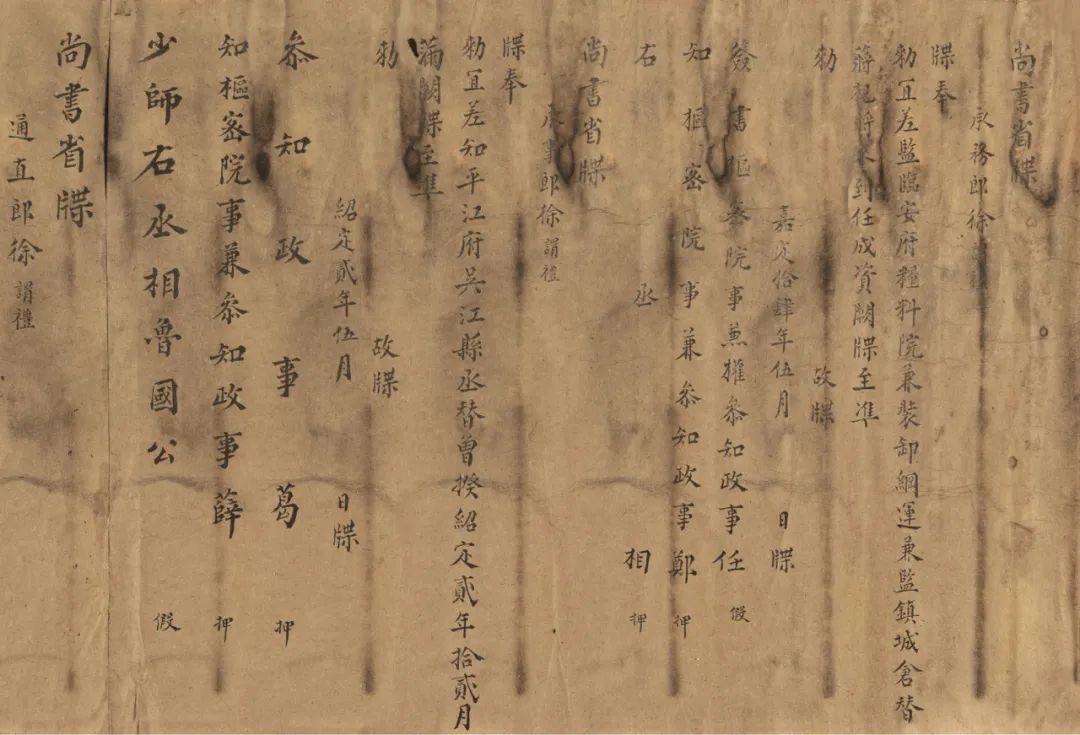 尚書省牒
承務郎徐謂禮
牒奉
勑宜差監臨安府糧料院兼裝卸綱運兼監鎮城倉替
蔣杞將來到任成資闕牒至準
勑
故牒
嘉定拾肆年伍月 日牒
簽書樞密院事兼權叅知政事任 假
知樞密院事兼叅知政事鄭 押
右丞相 押
尚書省牒
承事郎徐謂禮
牒奉
勑宜差知平江府吳江縣丞替曾揆紹定貳年拾貳月
滿闕牒至準
勑
故牒
紹定貳年伍月 日牒
叅知政事葛 押
知樞密院事兼叅知政事薛 押
少師右丞相魯國公 假
尚書省牒
通直郎徐謂禮